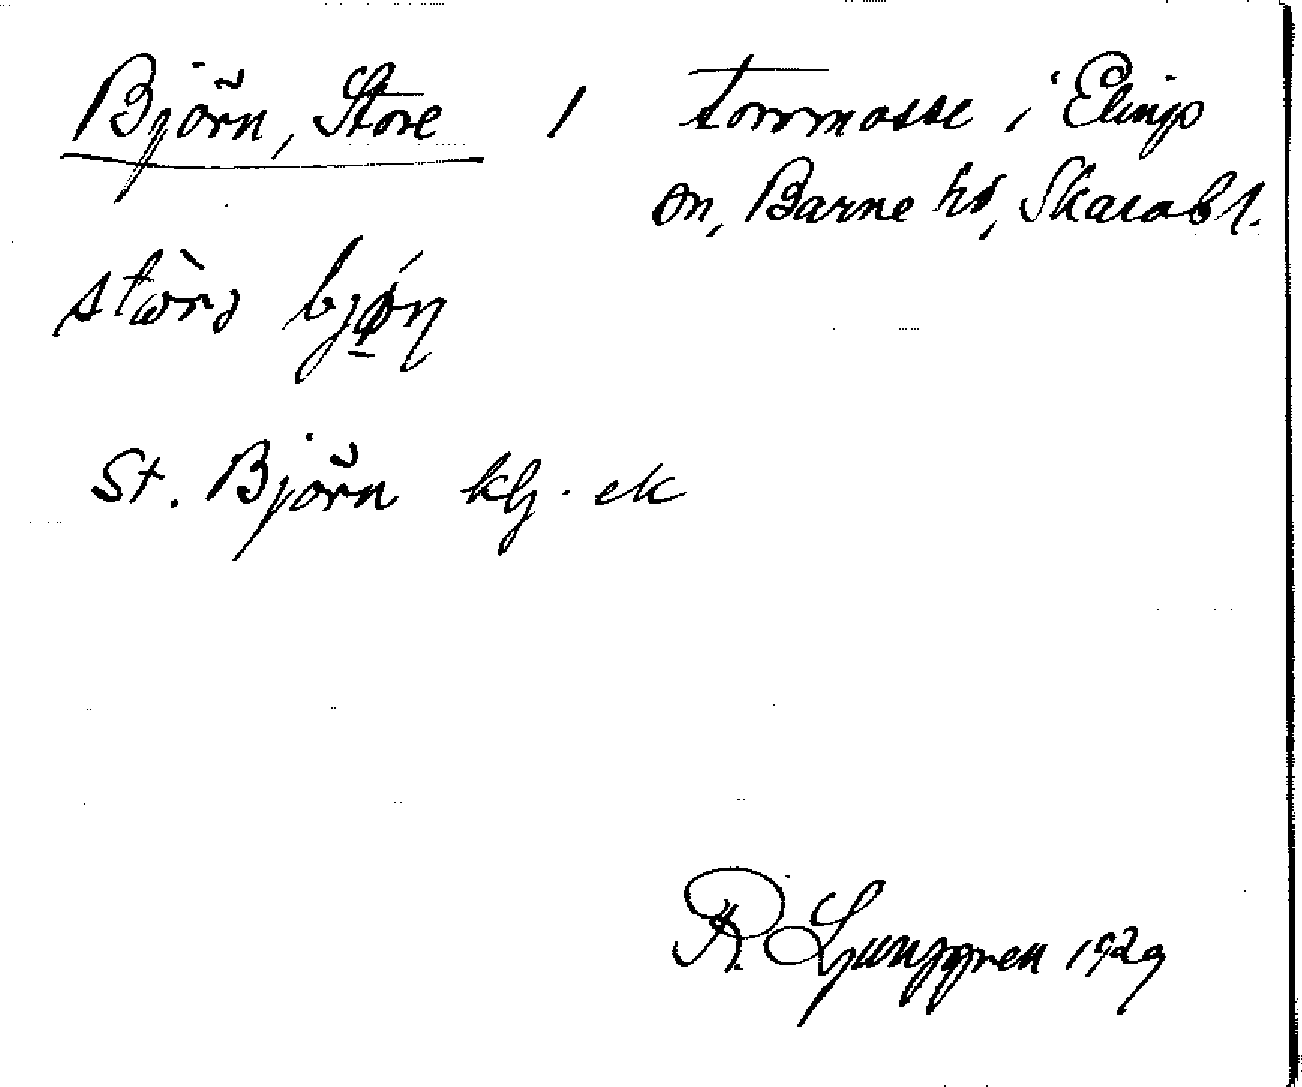 Björn, Store / torvmosse i Elinjo
sn, Barne hd, Skarabl.
stòrə bjǿ̱n
St. Björn klg. ek
R Ljunggren 1929